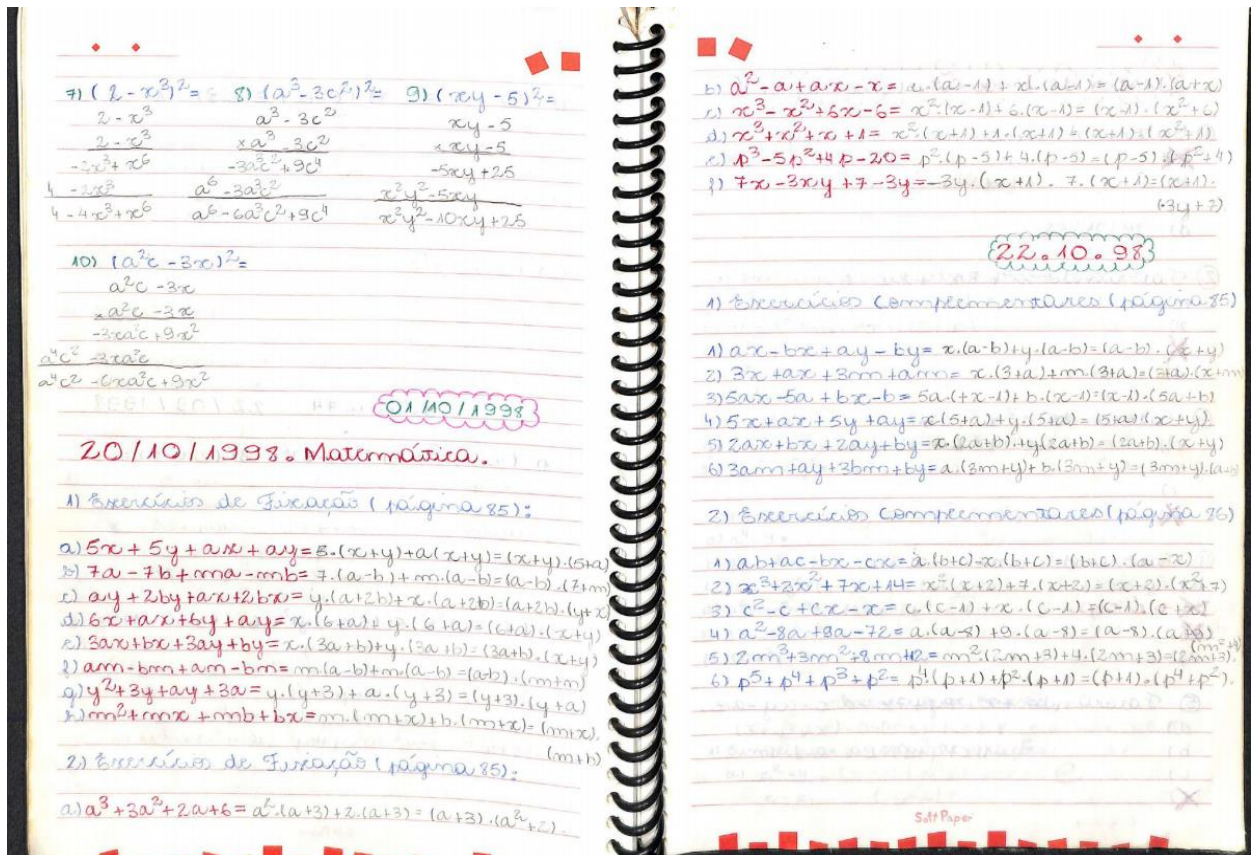 7) (2 - x³)² = 8) (a³ - 3c²)² = 9) (xy - 5)² =
2 - x³ a³ - 3c² xy - 5
2 - x³ x a³ - 3c² x xy - 5
-2x³ + x⁶ -3a³c² + 9c⁴ -5xy + 25
4 - 2x³ a⁶ - 3a³c² x²y² - 5xy
4 - 4x³ + x⁶ a⁶ - 6a³c² + 9c⁴ x²y² - 10xy + 25
10) (a²c - 3x)² =
a²c - 3x
x a²c - 3x
-3xa²c + 9x²
a⁴c² - 3xa²c
a⁴c² - 6xa²c + 9x²
01/10/1998
20/10/1998. Matemática.
1) Exercícios de Fixação (página 85):
a) 5x + 5y + ax + ay = 5.(x+y)+a(x+y)=(x+y).(5+a)
b) 7a - 7b + ma - mb = 7.(a-b)+m.(a-b)=(a-b).(7+m)
c) ay + 2by + ax + 2bx = y.(a+2b)+x.(a+2b)=(a+2b).(y+x)
d) 6x + ax + 6y + ay = x.(6+a)+y.(6+a)=(6+a).(x+y)
e) 3ax + bx + 3ay + by = x.(3a+b)+y.(3a+b)=(3a+b).(x+y)
f) am - bm + an - bn = m.(a-b)+n.(a-b)=(a-b).(m+n)
g) y² + 3y + ay + 3a = y.(y+3)+a.(y+3)=(y+3).(y+a)
h) m² + mx + mb + bx = m.(m+x)+b.(m+x)=(m+x).
(m+b)
2) Exercícios de Fixação (página 85):
a) a³ + 3a² + 2a + 6 = a².(a+3)+2.(a+3)=(a+3).(a²+2).
b) a² - a + ax - x = a.(a-1)+x.(a-1)=(a-1).(a+x)
c) x³ - x² + 6x - 6 = x².(x-1)+6.(x-1)=(x-1).(x²+6)
d) x³ + x² + x + 1 = x².(x+1)+1.(x+1)=(x+1).(x²+1)
e) p³ - 5p² + 4p - 20 = p².(p-5)+4.(p-5)=(p-5).(p²+4)
f) 7x - 3xy + 7 - 3y = -3y.(x+1). 7.(x+1)=(x+1).
(-3y+7)
22.10.98
1) Exercícios Complementares (página 85)
1) ax - bx + ay - by = x.(a-b)+y.(a-b)=(a-b).(x+y)
2) 3x + ax + 3m + am = x.(3+a)+m.(3+a)=(3+a).(x+m
3) 5ax - 5a + bx - b = 5a.(+x-1)+b.(x-1)=(x-1).(5a+b)
4) 5x + ax + 5y + ay = x(5+a)+y.(5+a)=(5+a).(x+y).
5) 2ax + bx + 2ay + by = x.(2a+b).+y(2a+b)=(2a+b).(x+y)
6) 3am + ay + 3bm + by = a.(3m+y)+b.(3m+y)=(3m+y).(a+b
2) Exercícios Complementares (página 86)
1) ab + ac - bx - cx = a.(b+c)-x.(b+c)=(b+c).(a-x)
2) x³ + 2x² + 7x + 14 = x².(x+2)+7.(x+2)=(x+2).(x²+7)
3) c² - c + cx - x = c.(c-1)+x.(c-1)=(c-1).(c+x)
4) a² - 8a + 9a - 72 = a.(a-8)+9.(a-8)=(a-8).(a+9)
5) 2m³ + 3m² + 8m + 12 = m².(2m+3)+4.(2m+3)=(2m+3).
(m²+4)
6) p⁵ + p⁴ + p³ + p² = p⁴(p+1)+p².(p+1)=(p+1).(p⁴+p²).
Soft Paper